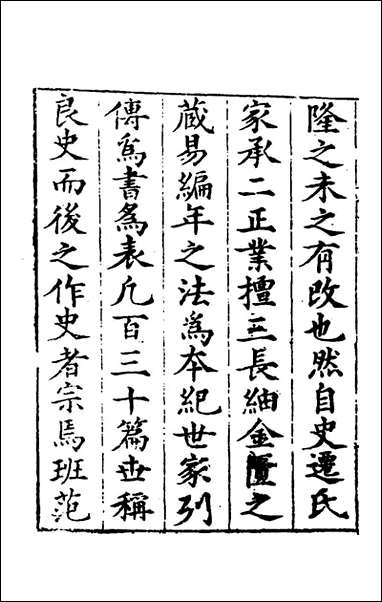 隆之未之有改也然自史遷氏
家承二正業擅三長紬金匱之
蔵易編年之法爲本紀世家列
傳爲書爲表凢百三十篇世稱
良史而後之作史者宗焉班范